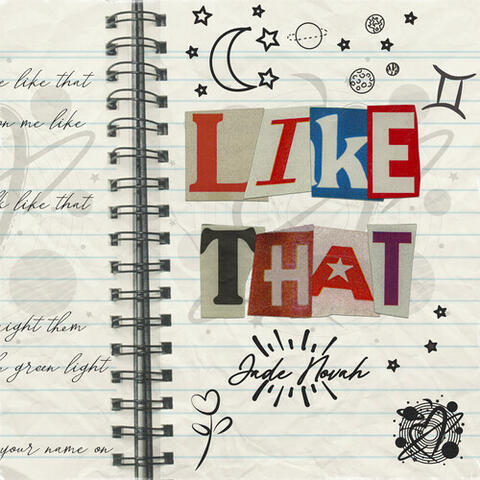 like that
on me like
like that
them
green light
your name on
LIKE
THAT
Jade Novah